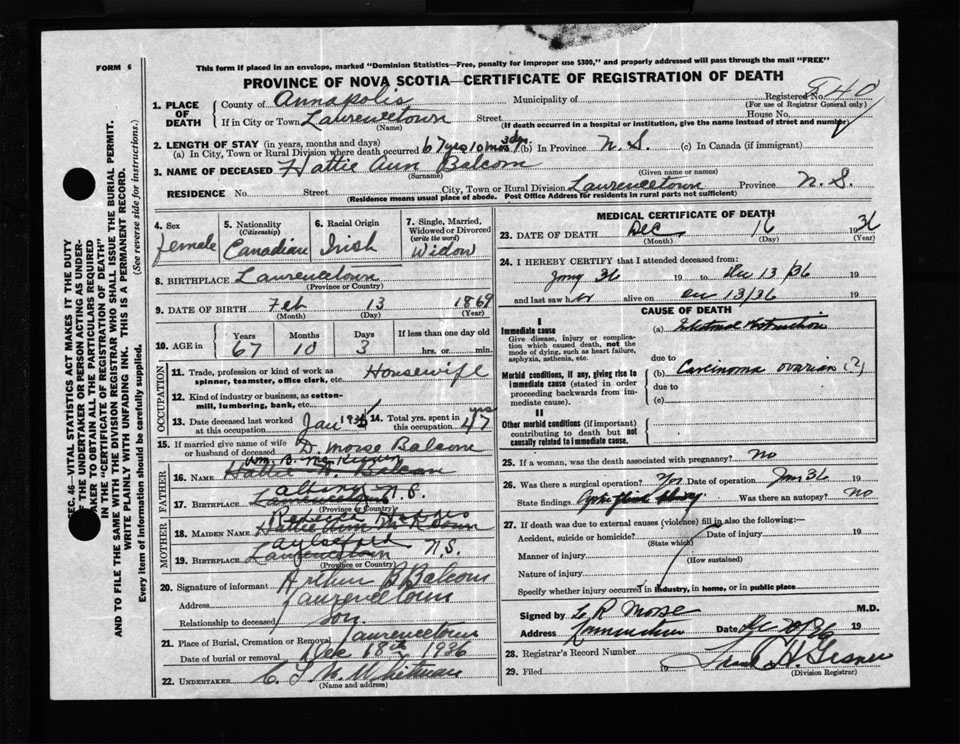 FORM 6
This form if placed in an envelope, marked "Dominion Statistics—Free, penalty for improper use $300," and properly addressed will pass through the mail "FREE"
PROVINCE OF NOVA SCOTIA—CERTIFICATE OF REGISTRATION OF DEATH
Registered No. 40
(For use of Registrar General only)
1. PLACE OF DEATH County of Annapolis Municipality of
If in City or Town Lawrencetown Street House No.
(Name) (If death occurred in a hospital or institution, give the name instead of street and number)
2. LENGTH OF STAY (in years, months and days)
(a) In City, Town or Rural Division where death occurred 67 yrs 10 mos 3 dys. (b) In Province N. S. (c) In Canada (if immigrant)
3. NAME OF DECEASED Hattie Ann Balcom
(Surname) (Given name or names)
RESIDENCE No. Street City, Town or Rural Division Lawrencetown Province N. S.
(Residence means usual place of abode. Post Office Address for residents in rural parts not sufficient)
4. Sex female
5. Nationality (Citizenship) Canadian
6. Racial Origin Irish
7. Single, Married, Widowed or Divorced (write the word) Widow
8. BIRTHPLACE Lawrencetown
(Province or Country)
9. DATE OF BIRTH Feb 13 1869
(Month) (Day) (Year)
10. AGE in Years 67 Months 10 Days 3 If less than one day old hrs. or min.
OCCUPATION
11. Trade, profession or kind of work as spinner, teamster, office clerk, etc. Housewife
12. Kind of industry or business, as cotton-mill, lumbering, bank, etc.
13. Date deceased last worked at this occupation Jan 1936
14. Total yrs. spent in this occupation 47 yrs
15. If married give name of wife or husband of deceased D. Morse Balcom
FATHER
16. NAME Wm B.
17. BIRTHPLACE N.S.
(Province or Country)
MOTHER
18. MAIDEN NAME
19. BIRTHPLACE Aylesford Lawrencetown N.S.
(Province or Country)
20. Signature of informant Arthur B Balcom
Address Lawrencetown
Relationship to deceased son.
21. Place of Burial, Cremation or Removal Lawrencetown
Date of burial or removal Dec 18th 1936
22. UNDERTAKER Whitman
(Name and address)
MEDICAL CERTIFICATE OF DEATH
23. DATE OF DEATH Dec 16 1936
(Month) (Day) (Year)
24. I HEREBY CERTIFY that I attended deceased from:
36 19 to Dec 13/36 19
and last saw her alive on 13/36 19
CAUSE OF DEATH
I
Immediate cause
Give disease, injury or complication which caused death, not the mode of dying, such as heart failure, asphyxia, asthenia, etc.
(a) Intestinal obstruction
due to
Morbid conditions, if any, giving rise to immediate cause (stated in order proceeding backwards from immediate cause).
(b) Carcinoma ovarian (?)
due to
(c)
II
Other morbid conditions (if important) contributing to death but not causally related to immediate cause.
25. If a woman, was the death associated with pregnancy? No
26. Was there a surgical operation? Yes Date of operation 36
State findings Was there an autopsy? No
27. If death was due to external causes (violence) fill in also the following:—
Accident, suicide or homicide? Date of injury 19
(State which)
Manner of injury
(How sustained)
Nature of injury
Specify whether injury occurred in industry, in home, or in public place
Signed by L R Morse M.D.
Address Lawrencetown Date 19
28. Registrar's Record Number
29. Filed 19 Gesner
(Division Registrar)
SEC. 46—VITAL STATISTICS ACT MAKES IT THE DUTY
OF THE UNDERTAKER OR PERSON ACTING AS UNDERTAKER TO OBTAIN ALL THE PARTICULARS REQUIRED
IN THE "CERTIFICATE OF REGISTRATION OF DEATH"
AND TO FILE THE SAME WITH THE DIVISION REGISTRAR WHO SHALL ISSUE THE BURIAL PERMIT.
WRITE PLAINLY WITH UNFADING INK. THIS IS A PERMANENT RECORD.
Every item of information should be carefully supplied. (See reverse side for instructions.)